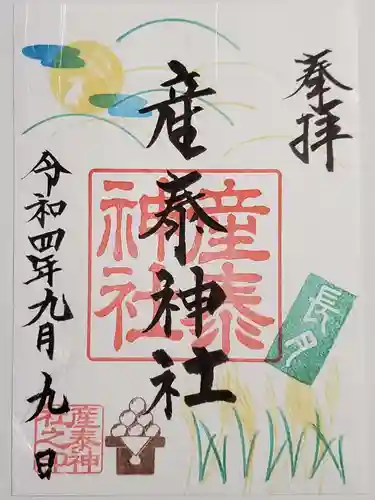 奉拝
産泰神社
産泰
神社
長月
令和四年九月九日
産泰神
社之印